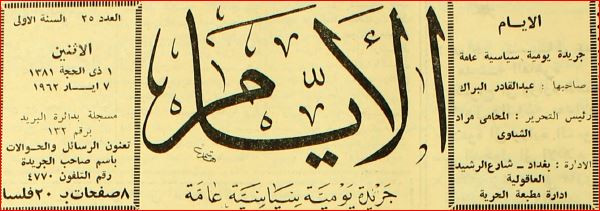 الايام
جريدة يومية سياسية عامة
صاحبها : عبدالقادر البراك
رئيس التحرير : المحامي مراد
الشناوى
الادارة : بغداد - شارع الرشيد
العاقولية
ادارة مطبعة الحرية
الأيام
جريدة يومية سياسية عامة
العدد ٢٥ السنة الاولى
الاثنين
١ ذى الحجة ١٣٨١
٧ ايسار ١٩٦٢
مسجلة بدائرة البريد
برقم ١٣٢
تعنون الرسائل والحوالات
باسم صاحب الجريدة
رقم التلفون ٤٧٧٠
٨ صفحات بـ ٢٠ فلسا